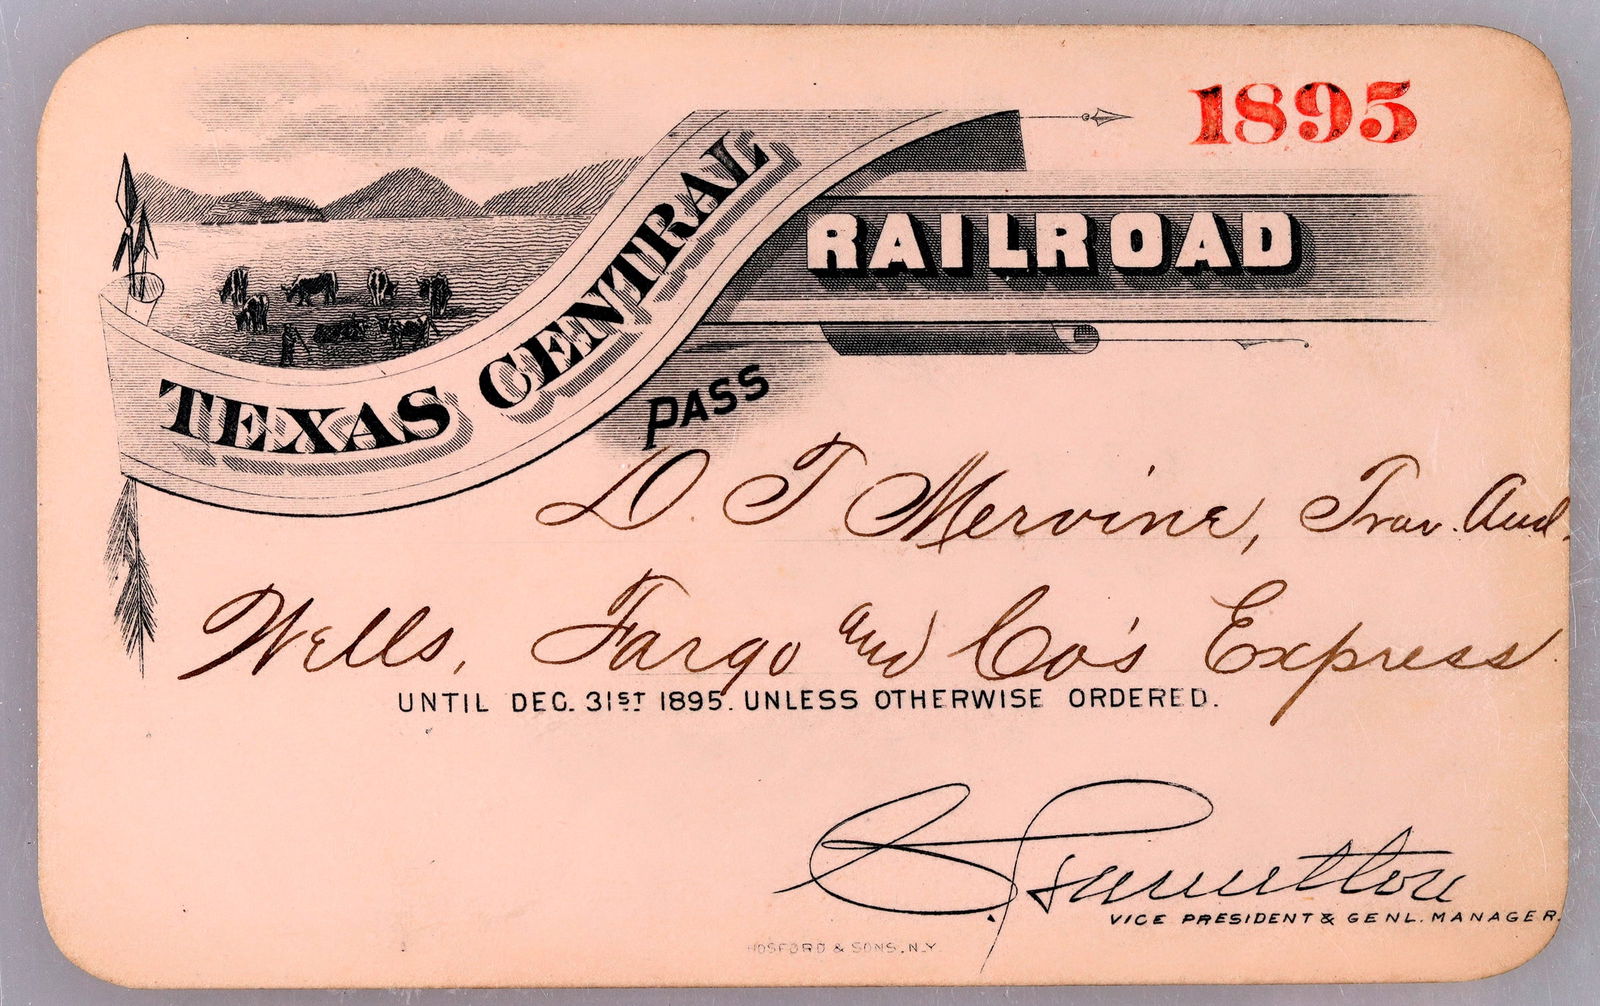 1895
TEXAS CENTRAL
RAILROAD
PASS
D. T Mervine, Trav. Aud.
Wells, Fargo and Co's Express
UNTIL DEC. 31ST 1895. UNLESS OTHERWISE ORDERED.
Hamilton
VICE PRESIDENT & GENL. MANAGER.
HOSFORD & SONS, N.Y.